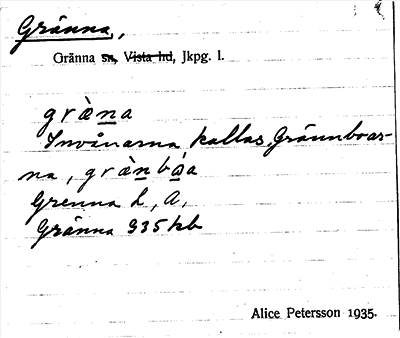 Gränna,
Gränna sn, Vista hd, Jkpg. l.
græ̀n̲a
Invånarna kallas Grännboar-
na, græ̀n̲bo̲a
Grenna L, A,
Gränna 935 kb
Alice Petersson 1935.